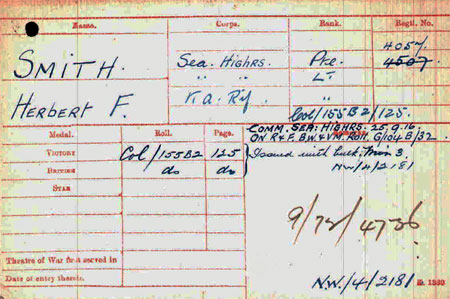 Name. Corps. Rank. Regtl. No.
4057.
SMITH. Sea. Highrs. Pte. 4507
" " Lt
HERBERT F. K.A. Rif "
Col/155B2/125.
Medal. Roll. Page. COMM. SEA: HIGHRS. 25.9.16.
ON R & F. B.W. & V.M. ROLL. G/104B/32.
VICTORY Col/155B2 125 Issued with
BRITISH do do NW/4/2181
STAR
9/72/4736
Theatre of War first served in
Date of entry therein. N.W./4/2181